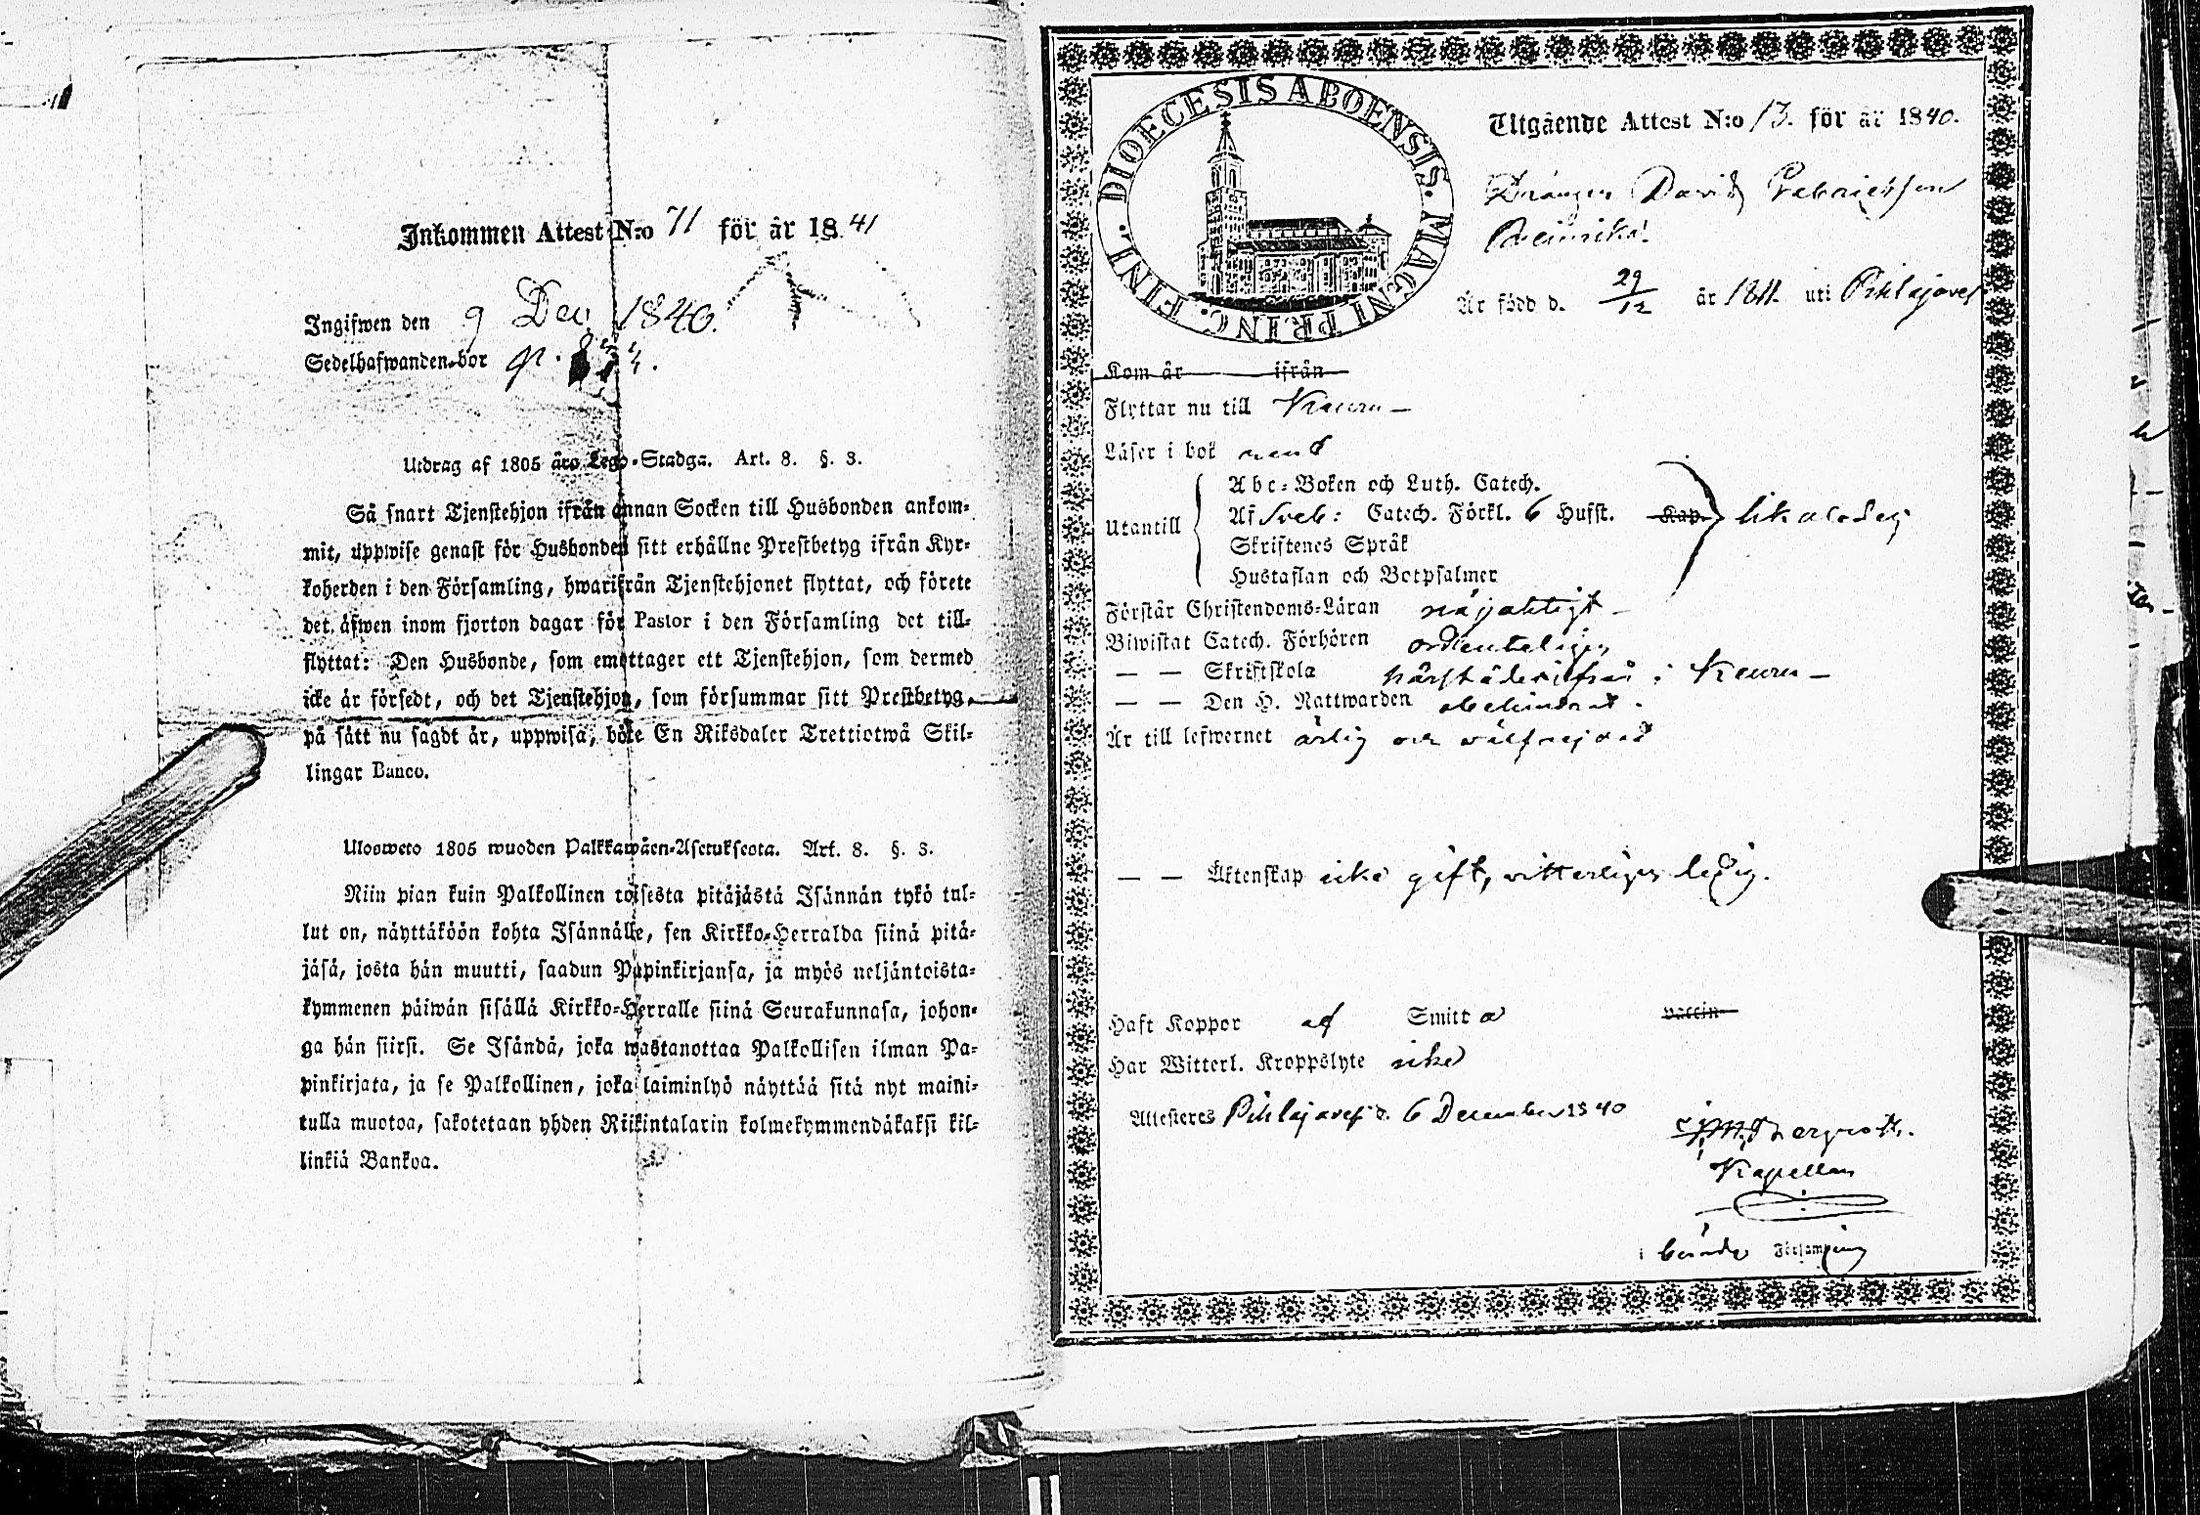 Inkommen Attest N:o 71 för år 1841
Ingifwen den 9 Dec 1840.
Sedelhafwanden bor
Utdrag af 1805 års Lego-Stadga. Art. 8. §. 3.
Så snart Tjenstehjon ifrån annan Socken till Husbonden ankom-
mit, uppwise genast för Husbonden sitt erhållne Prestbetyg ifrån Kyr-
koherden i den Församling, hwarifrån Tjenstehjonet flyttat, och förete
det äfwen inom fjorton dagar för Pastor i den Församling det till-
flyttat: Den Husbonde, som emottager ett Tjenstehjon, som dermed
icke är försedt, och det Tjenstehjon, som försummar sitt Prestbetyg,
på sätt nu sagdt är, uppwisa, böte En Riksdaler Trettiotwå Skil-
lingar Banco.
Ulosweto 1805 wuoden Palkkawäen-Asetuksesta. Art. 8. §. 3.
Niin pian kuin Palkollinen toisesta pitäjästä Isännän tykö tul-
lut on, näyttäköön kohta Isännälle, sen Kirkko-Herralda siinä pitä-
jäsä, josta hän muutti, saadun Papinkirjansa, ja myös neljäntoista-
kymmenen päiwän sisällä Kirkko-Herralle siinä Seurakunnasa, johon-
ga hän siirsi. Se Isändä, joka wastanottaa Palkollisen ilman Pa-
pinkirjata, ja se Palkollinen, joka laiminlyö näyttää sitä nyt maini-
tulla muotoa, sakotetaan yhden Riikintalarin kolmekymmendäkaksi kil-
linkiä Bankoa.
DIOECESIS ABOENSIS. MAGNI PRINC. FINL.
Utgående Attest N:o 13. för år 1840.
Drängen David Gabrielsson
Är född d. 29/12 år 1811. uti Pihlajavesi
Kom år ifrån
Flyttar nu till Keuru
Läser i bok
Abc-Boken och Luth. Catech.
Utantill Af Sveb: Catech. Förkl. 6 Hufst. Kap. likaledes
Skriftenes Språk
Hustaflan och Botpsalmer
Förstår Christendoms-Läran nöjaktigt
Biwistat Catech. Förhören ordenteligen
— — Skriftskola härstädes i Keuru
— — Den H. Nattwarden obehindrat.
Är till lefwernet ärlig och välfrejdad
— — Äktenskap icke gift, vitterligen ledig.
Haft Koppor af Smitta vaccin
Har Witterl. Kroppslyte icke
Attesteras Pihlajavesi d. 6 December 1840
Bergroth.
Kapellan
i berörde Församling